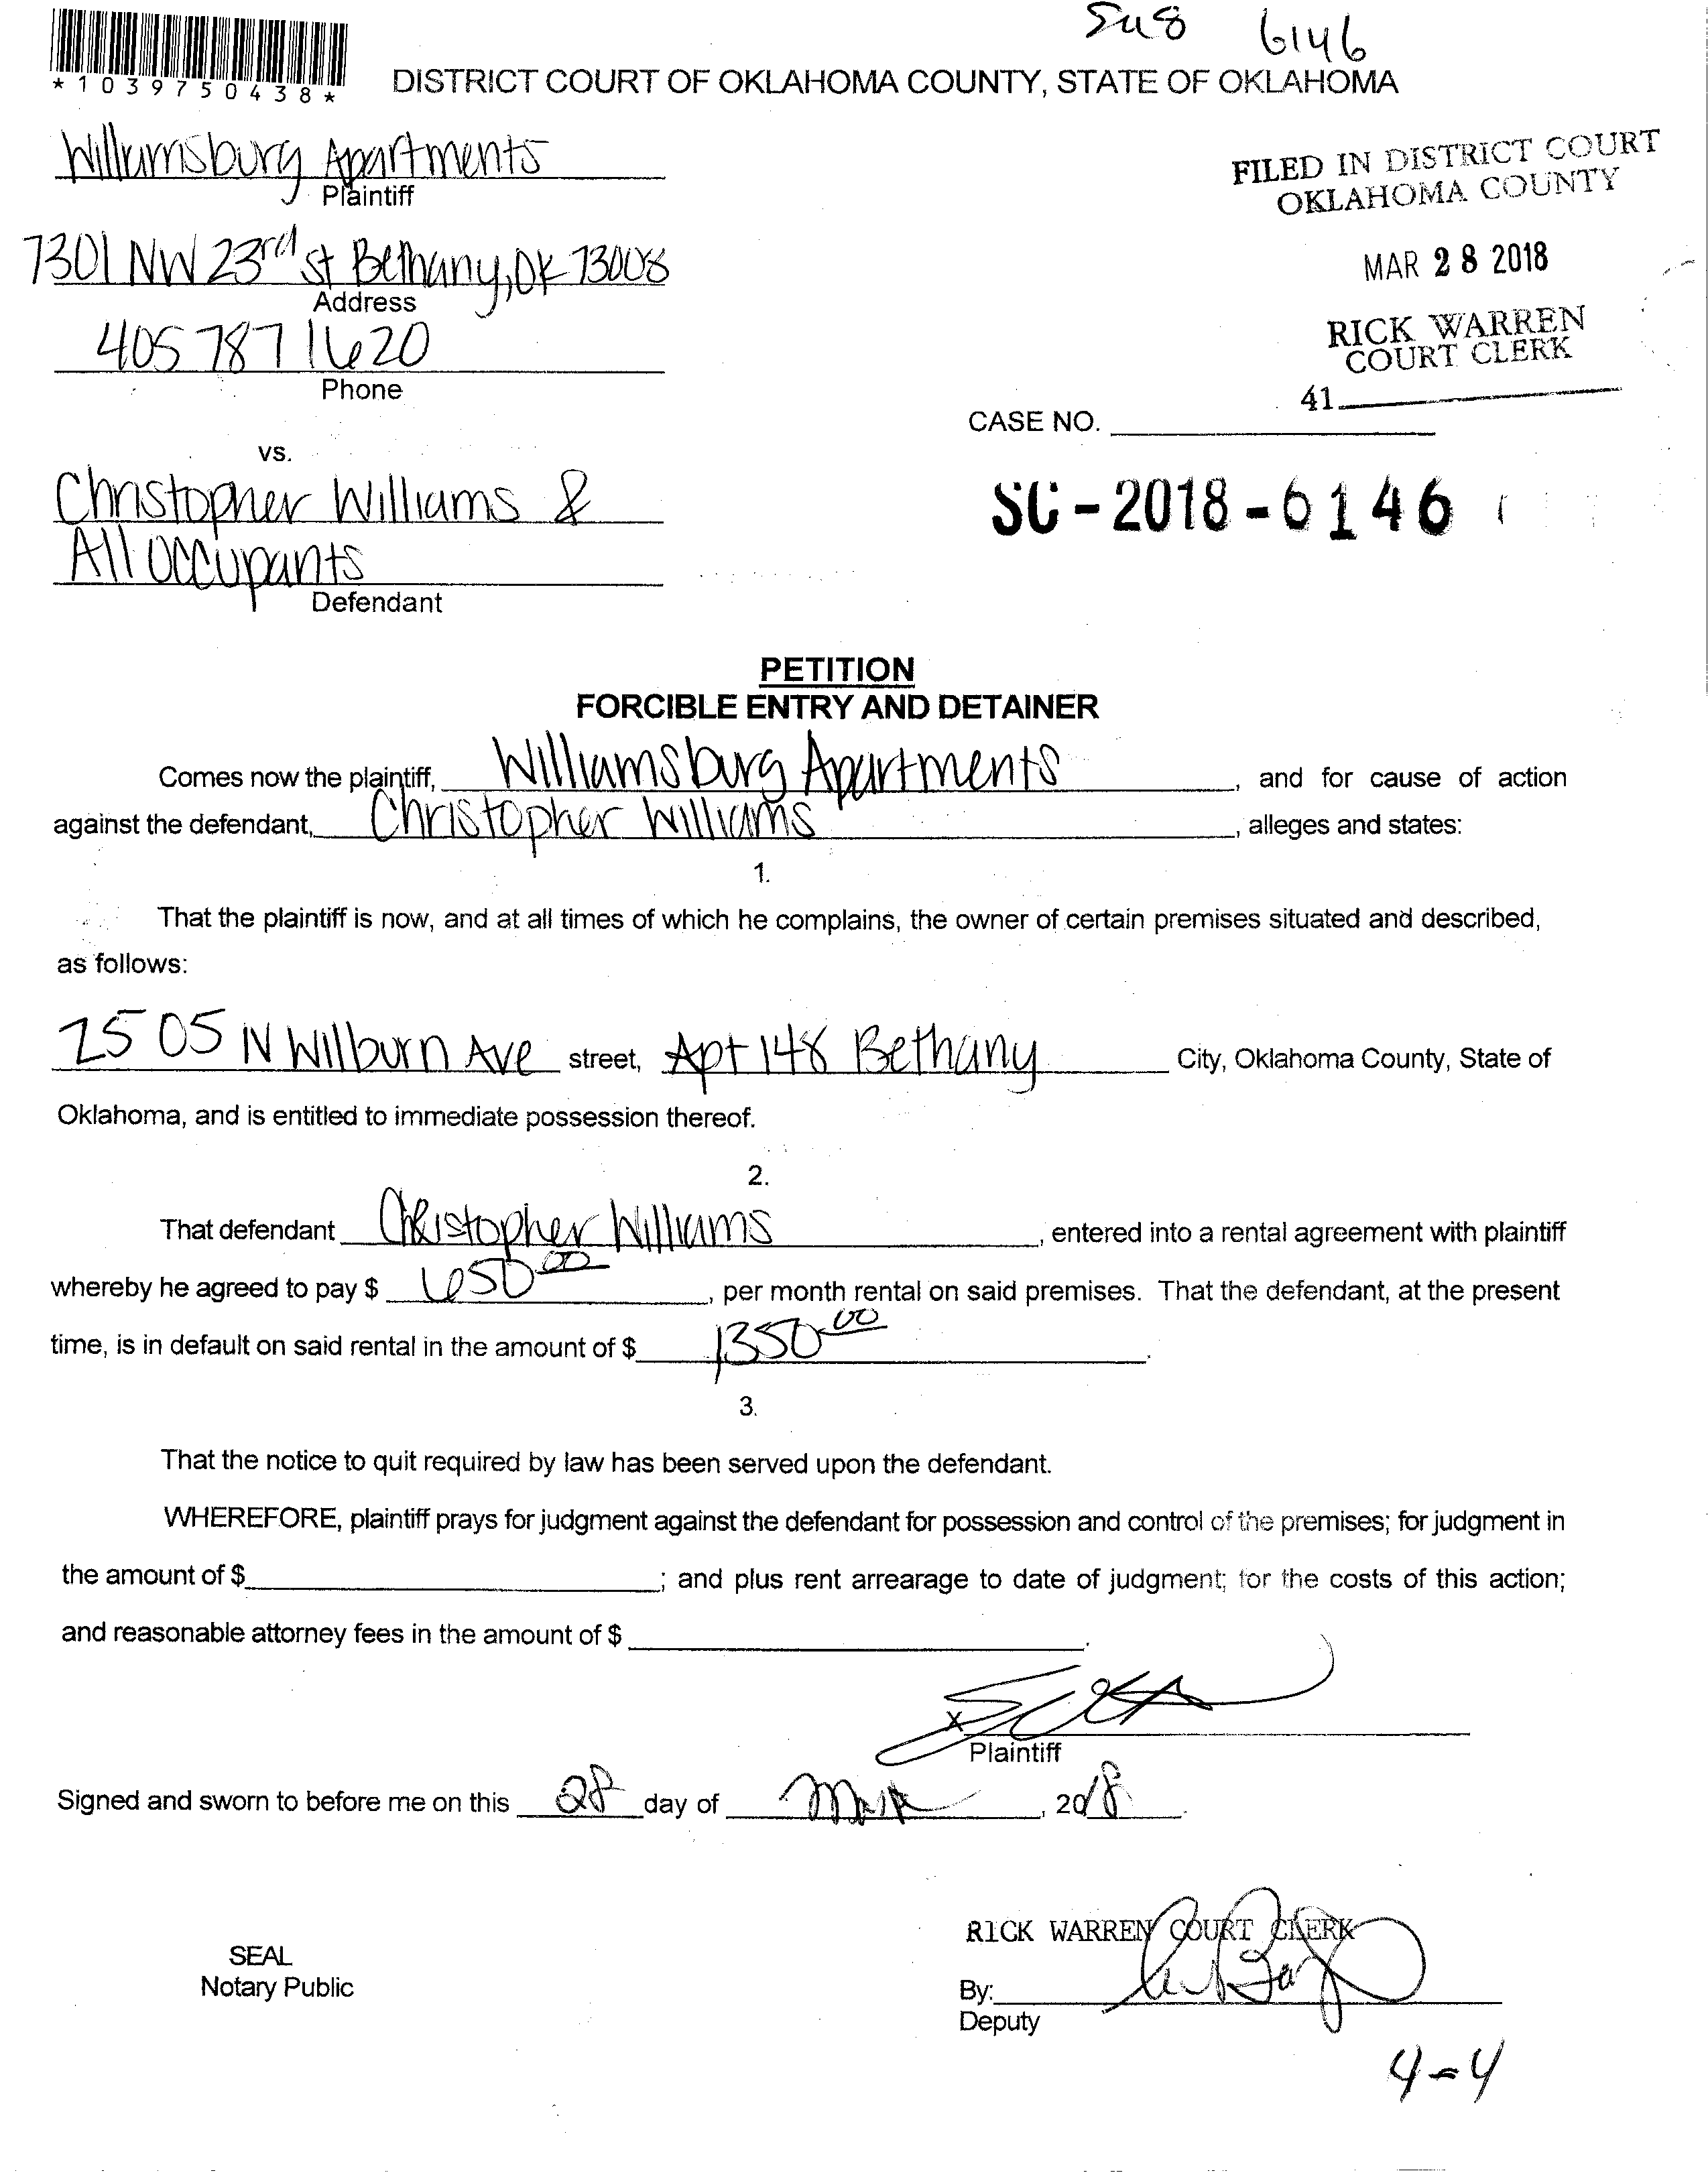 Su8 6146
*1039750438*
DISTRICT COURT OF OKLAHOMA COUNTY, STATE OF OKLAHOMA
Williamsburg Apartments
Plaintiff
FILED IN DISTRICT COURT
OKLAHOMA COUNTY
7301 NW 23rd St Bethany, OK 73008
Address
MAR 28 2018
405 787 1620
Phone
RICK WARREN
COURT CLERK
41
CASE NO.
vs.
Christopher Williams &
All Occupants
Defendant
SC-2018-6146
PETITION
FORCIBLE ENTRY AND DETAINER
Comes now the plaintiff, Williamsburg Apartments, and for cause of action
against the defendant, Christopher Williams, alleges and states:
1.
That the plaintiff is now, and at all times of which he complains, the owner of certain premises situated and described,
as follows:
2505 N Wilburn Ave street, Apt 148 Bethany City, Oklahoma County, State of
Oklahoma, and is entitled to immediate possession thereof.
2.
That defendant Christopher Williams, entered into a rental agreement with plaintiff
whereby he agreed to pay $ 650.00, per month rental on said premises. That the defendant, at the present
time, is in default on said rental in the amount of $ 1350.00.
3.
That the notice to quit required by law has been served upon the defendant.
WHEREFORE, plaintiff prays for judgment against the defendant for possession and control of the premises; for judgment in
the amount of $; and plus rent arrearage to date of judgment; for the costs of this action;
and reasonable attorney fees in the amount of $.
X
Plaintiff
Signed and sworn to before me on this 28 day of Mar, 2018.
SEAL
Notary Public
RICK WARREN COURT CLERK
By:
Deputy
4-4